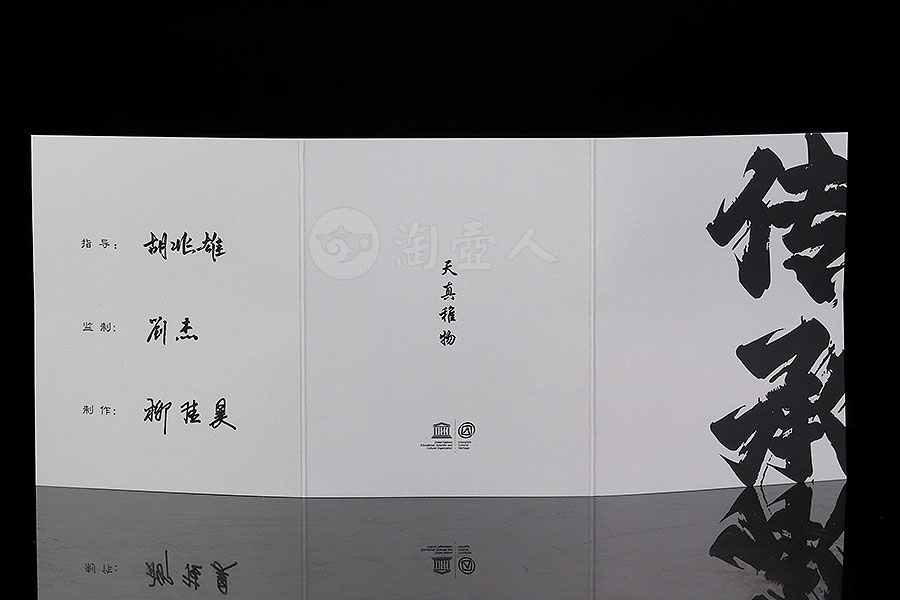 指导: 胡兆雄
监制: 劉杰
制作: 柳桂昊
淘壶人
天真稚物
United Nations
Educational, Scientific and
Cultural Organization
Intangible
Cultural
Heritage
传承